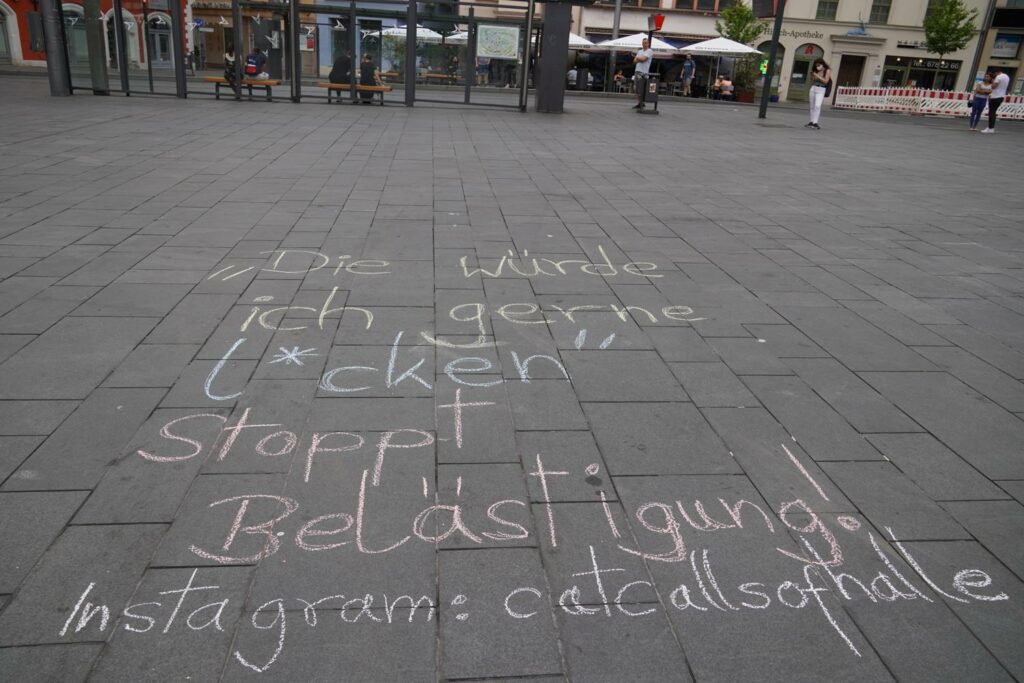 „Die würde
ich gerne
l*cken"
Stoppt
Belästigung!
Instagram: catcallsofhalle